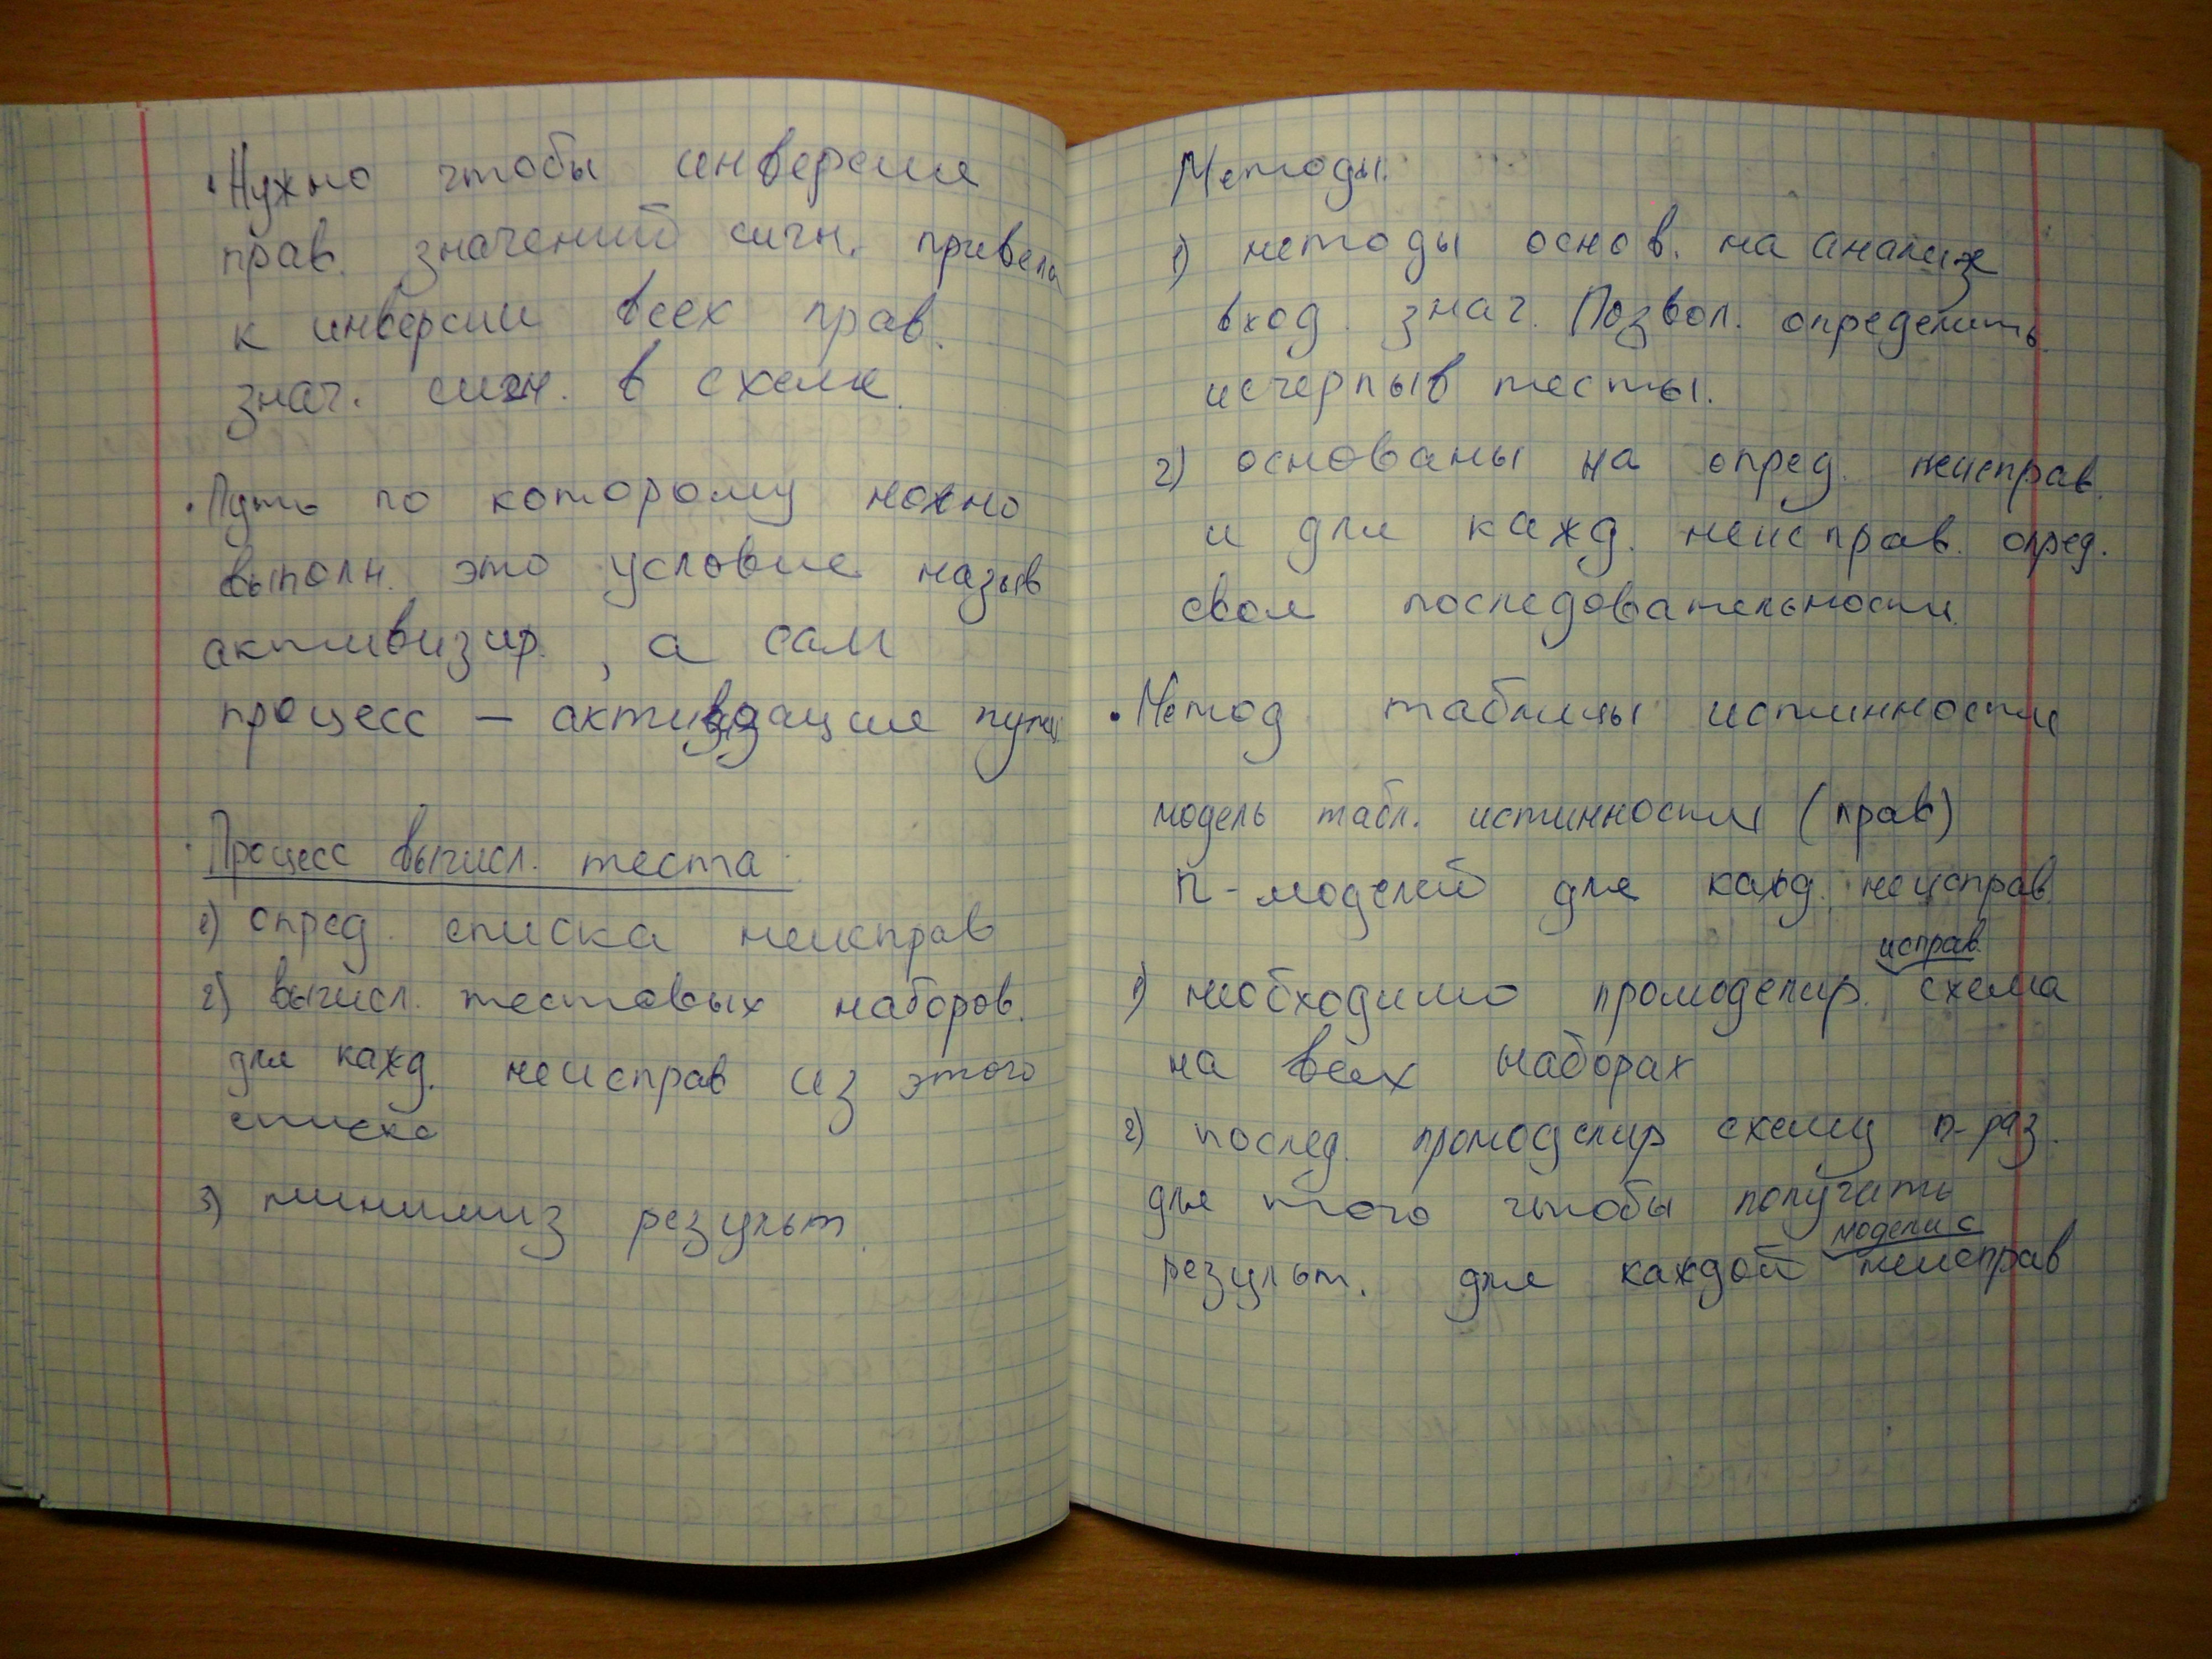 • Нужно чтобы инверсия
прав. значений сигн. привела
к инверсии всех прав.
знач. сигн. в схеме.
• Путь по которому можно
выполн. это условие назыв
активизир. , а сам
процесс – активизация пути
• Процесс вычисл. теста:
1) опред. списка неисправ
2) вычисл. тестовых наборов.
для кажд. неисправ из этого
списка
3) минимиз результ.
Методы:
1) методы основ. на анализе
вход. знач. Позвол. определить
исчерпыв тесты.
2) основаны на опред. неисправ.
и для кажд. неисправ. опред.
свои последовательности.
• Метод таблицы истинности
модель табл. истинности (прав)
n-моделей для кажд. неисправ
исправ.
1) необходимо промоделир. схема
на всех наборах
2) послед. промоделир схему n-раз.
для того чтобы получать
модели с
результ. для каждой неисправ